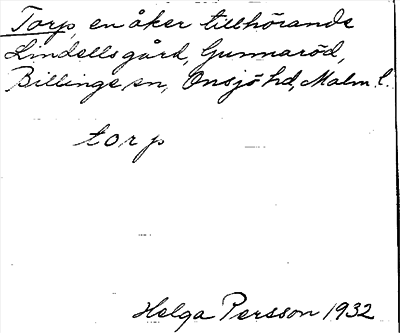 Torp, en åker tillhörande
Lindells gård, Gunnaröd,
Billinge sn, Onsjö hd, Malm. l.
torp
Helga Persson 1932